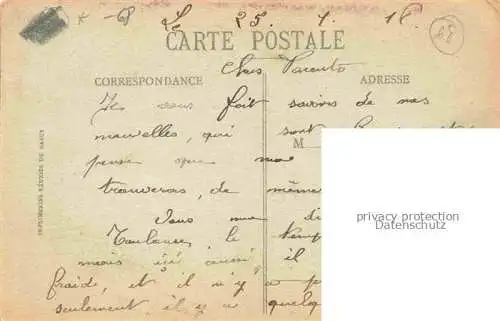 Le 25. 1. 16
CARTE POSTALE
Chers Parents
CORRESPONDANCE
ADRESSE
Je vous fait savoir de nos
nouvelles, qui sont
M
pense que
trouveras, de même
Vous me di
Toulouse, le temps
mais ici aussi, il
froide, et il n'y a p
seulement, il y a quelq
IMPRIMERIES RÉUNIES DE NANCY
privacy protection
Datenschutz